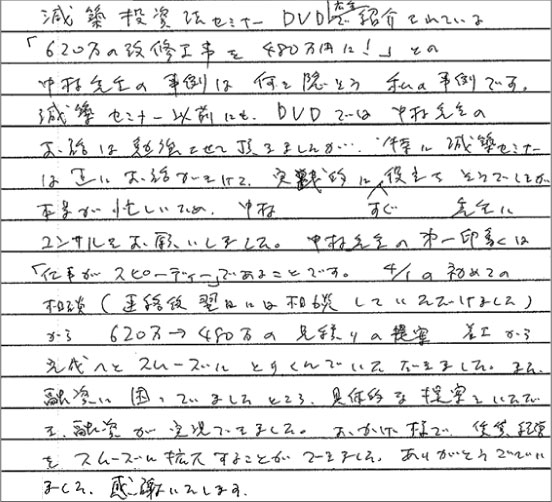 減築投資法セミナー DVDに紹介されている
「620万の改修工事を480万円に！」との
中村先生の事例は何を隠そう 私の事例です。
減築セミナー以前にも、DVDでは中村先生の
お話は勉強させて頂きましたが… 特に減築セミナー
は 生に お話がきけて、実践的に役立ち そうでしたが
本業が忙しいため、中村 すぐ 先生に
コンサルをお願いしました。中村先生の第一印象は
「仕事がスピーディー」であることです。4/1の初めての
相談（連絡後翌日には相談していただけました）
から 620万→480万の見積りの提案 着工から
完成へとスムーズにとりくんでいただきました。また、
融資に困っていましたところ、具体的な提案をいただ
き、融資が実現できました。おかげ様で、賃貸経営
をスムーズに拡大することができました。ありがとうござい
ました。感謝いたします。